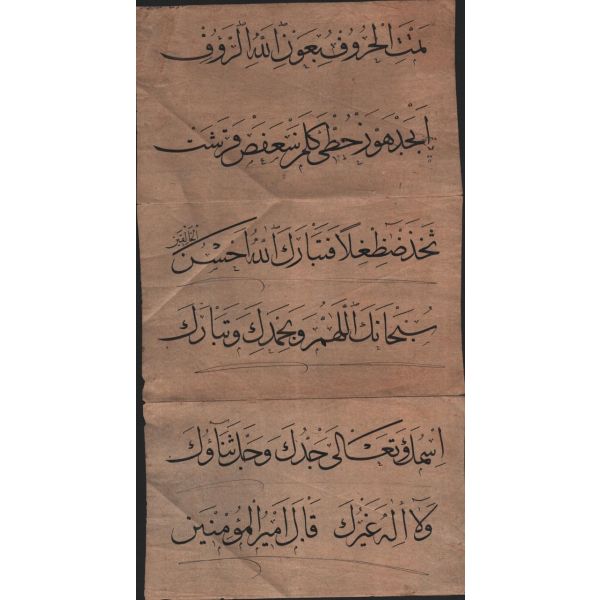 تَمَّتِ الْحُرُوفُ بِعَوْنِ اللّٰهِ الرَّؤُفِ
اَبْجَدْ هَوَّزْ حُطِّى كَلَمَنْ سَعْفَصْ قَرَشَتْ
ثَخَذْ ضَظِغْلًا فَتَبَارَكَ اللّٰهُ اَحْسَنُ الْخَالِقِينَ
سُبْحَانَكَ اللّٰهُمَّ وَبِحَمْدِكَ وَتَبَارَكَ
اسْمُكَ وَتَعَالٰى جَدُّكَ وَجَلَّ ثَنَاؤُكَ
وَلَا اِلٰهَ غَيْرُكَ قَالَ اَمِيرُ الْمُؤْمِنِينَ